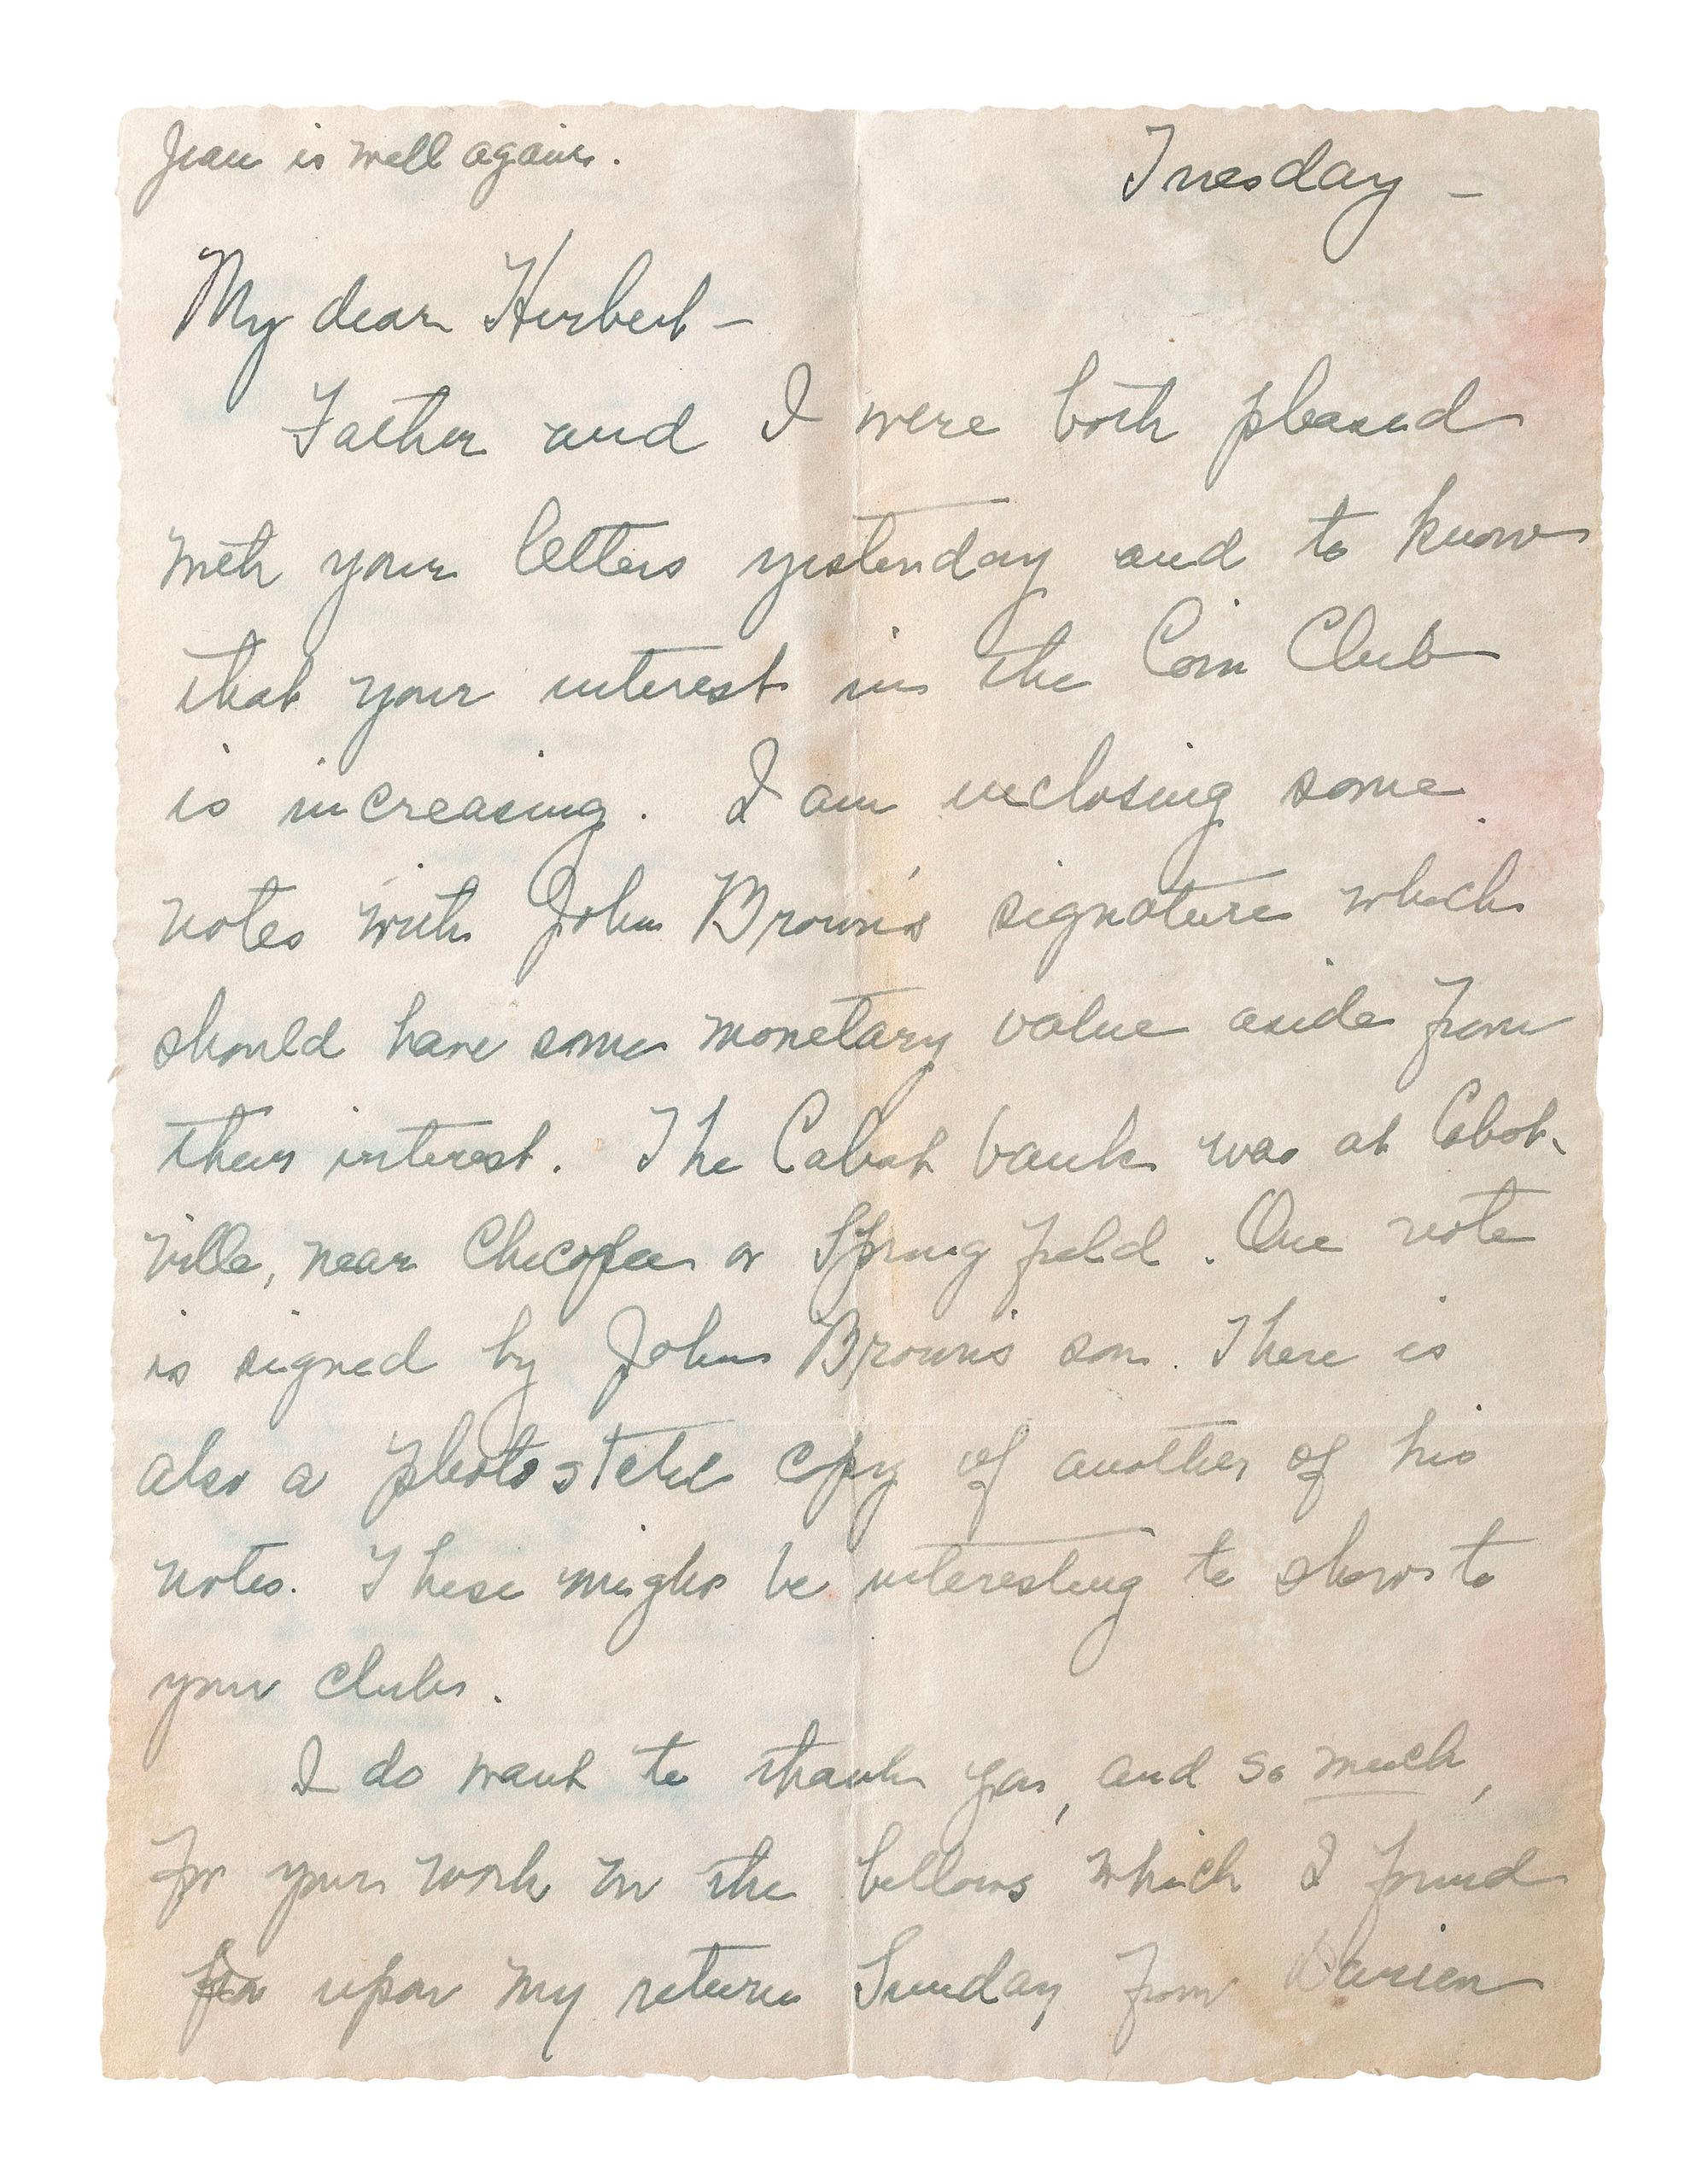 Jean is well again.
Tuesday —
My dear Herbert —
Father and I were both pleased
with your letters yesterday and to know
that your interest in the Coin Club
is increasing. I am inclosing some
notes with John Brown's signature which
should have some monetary value aside from
their interest. The Cabot bank was at Cabot-
ville, near Chicopee or Springfield. One note
is signed by John Brown's son. There is
also a photostatic copy of another of his
notes. These might be interesting to show to
your clubs.
I do want to thank you, and so much,
for your work on the bellows which I found
upon my return Sunday from Darien